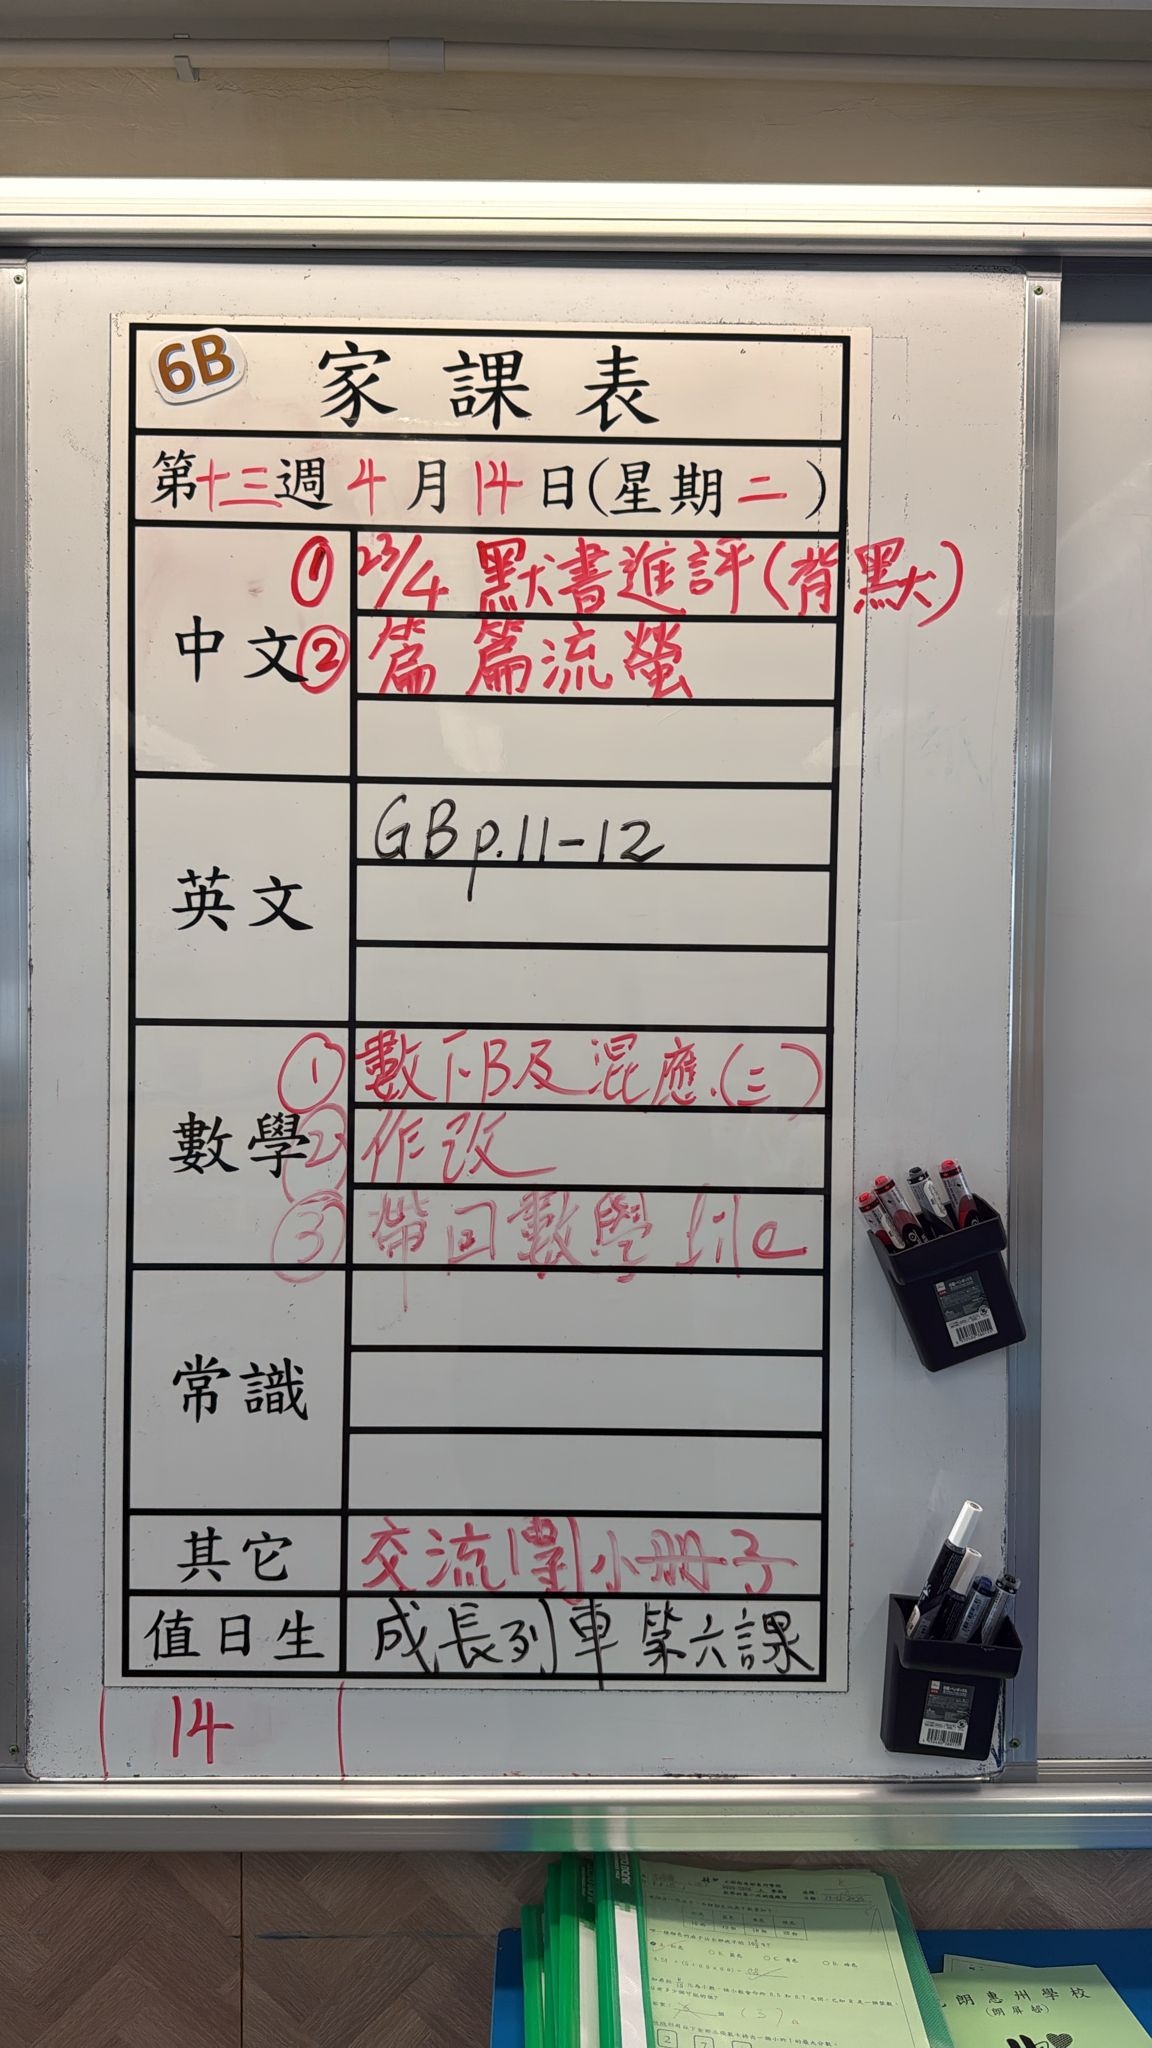 6B
家課表
第十三週 4月14日(星期二)
中文
① 23/4 默書進評(背默)
② 篇篇流螢
英文
GB p.11-12
數學
① 數下B及混應.(三)
② 作改
③ 帶回數學 file
常識
其它
交流團小冊子
值日生
成長列車 第六課
14
朗惠州學校
(朗屏邨)